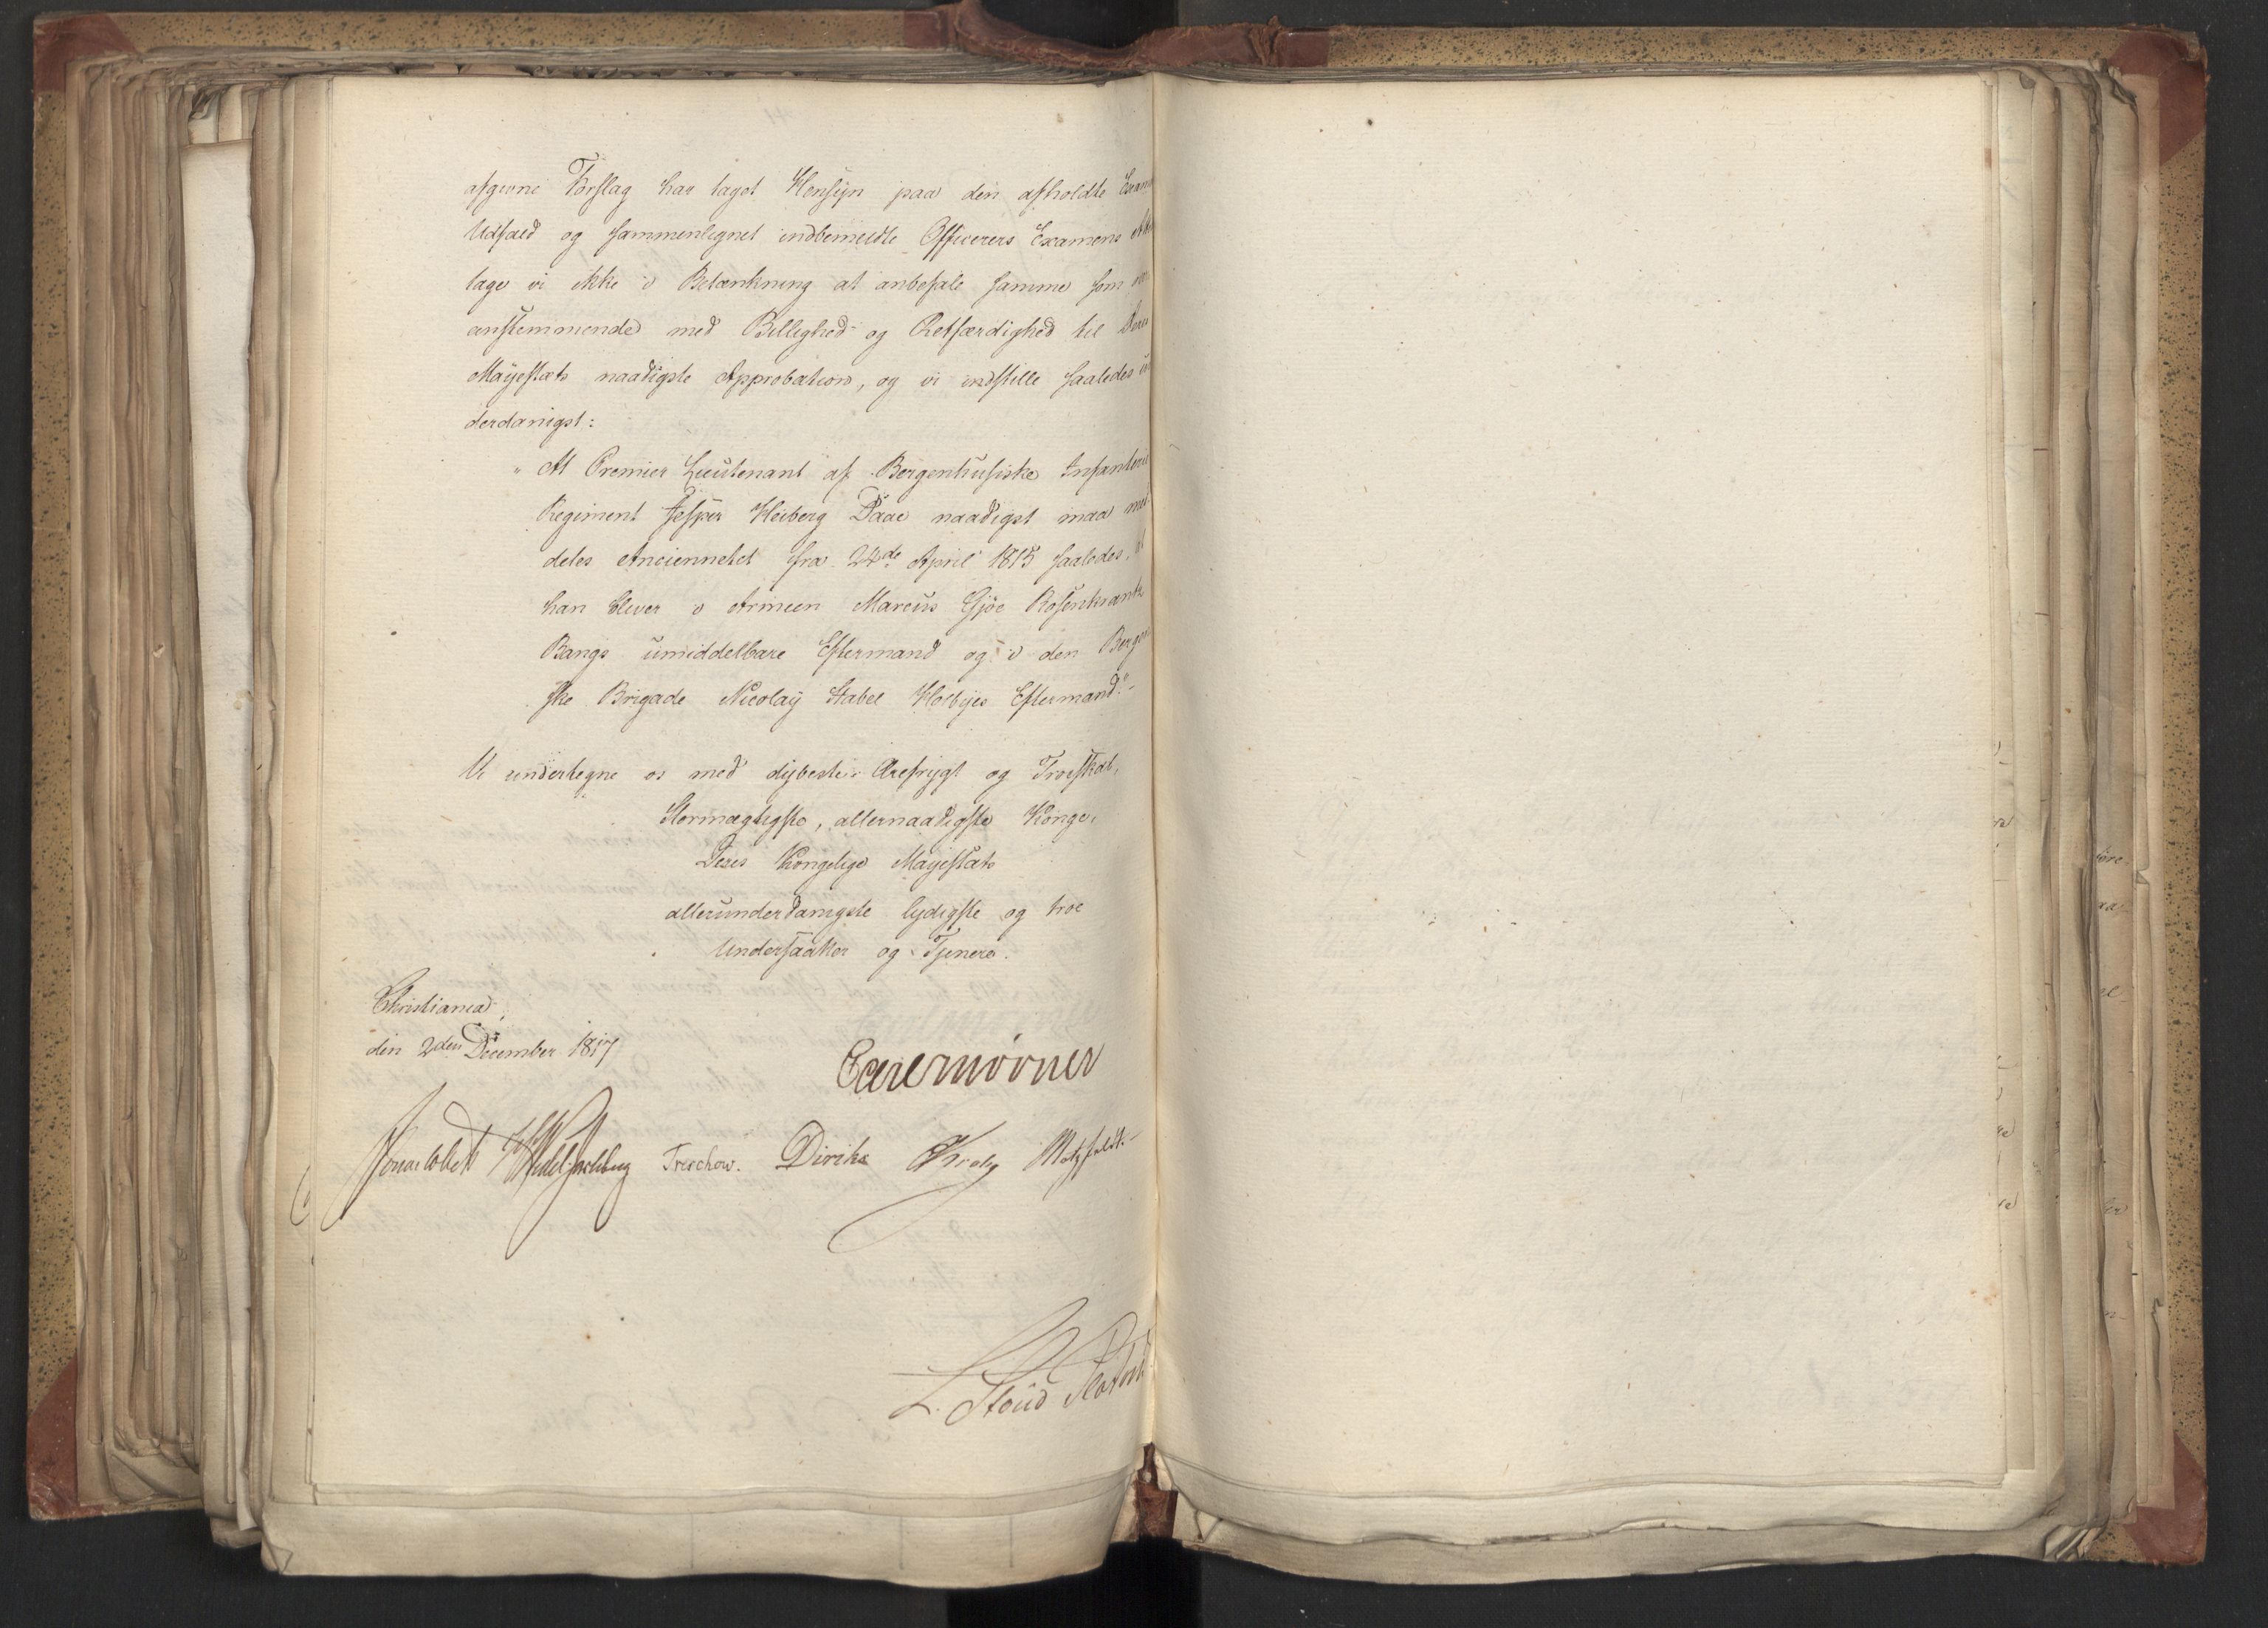 afgivne Forslag har taget Hensÿn paa den afholdte
Udfald og sammenlignet indbemeldte Officerers Examens
tage vi ikke i Betænkning at anbefale samme som
eensstemmende med Billighed og Retfærdighed til Deres
Mayestæts naadigste Approbation, og vi indstille saaledes un
derdanigst:
" At Premier Lieutenant af Bergenhusiske Infanterie
Regiment Jesper Heiberg Daae naadigst maa med
deles Anciennetet fra 24de April 1815 saaledes, at
han bliver i Armeen Marcus Gjöe Rosenkrantz
Bangs umiddelbare Eftermand og i den Bergen
ske Brigade Nicolaÿ Stabel Holbÿes Eftermand."
Vi undertegne os med dÿbeste Ærefrÿgt og Troeskab,
Stormægtigste, allernaadigste Konge,
Deres Kongelige Mayestæts
allerunderdanigste lydigste og troe
Undersaatter og Tjenere.
Christiania,
den 2den December 1817
Carl Mörner
Jonas Collett HWedel Jarlsberg Treschow. Diriks Krog Motzfeldt
L. Stoud Platou